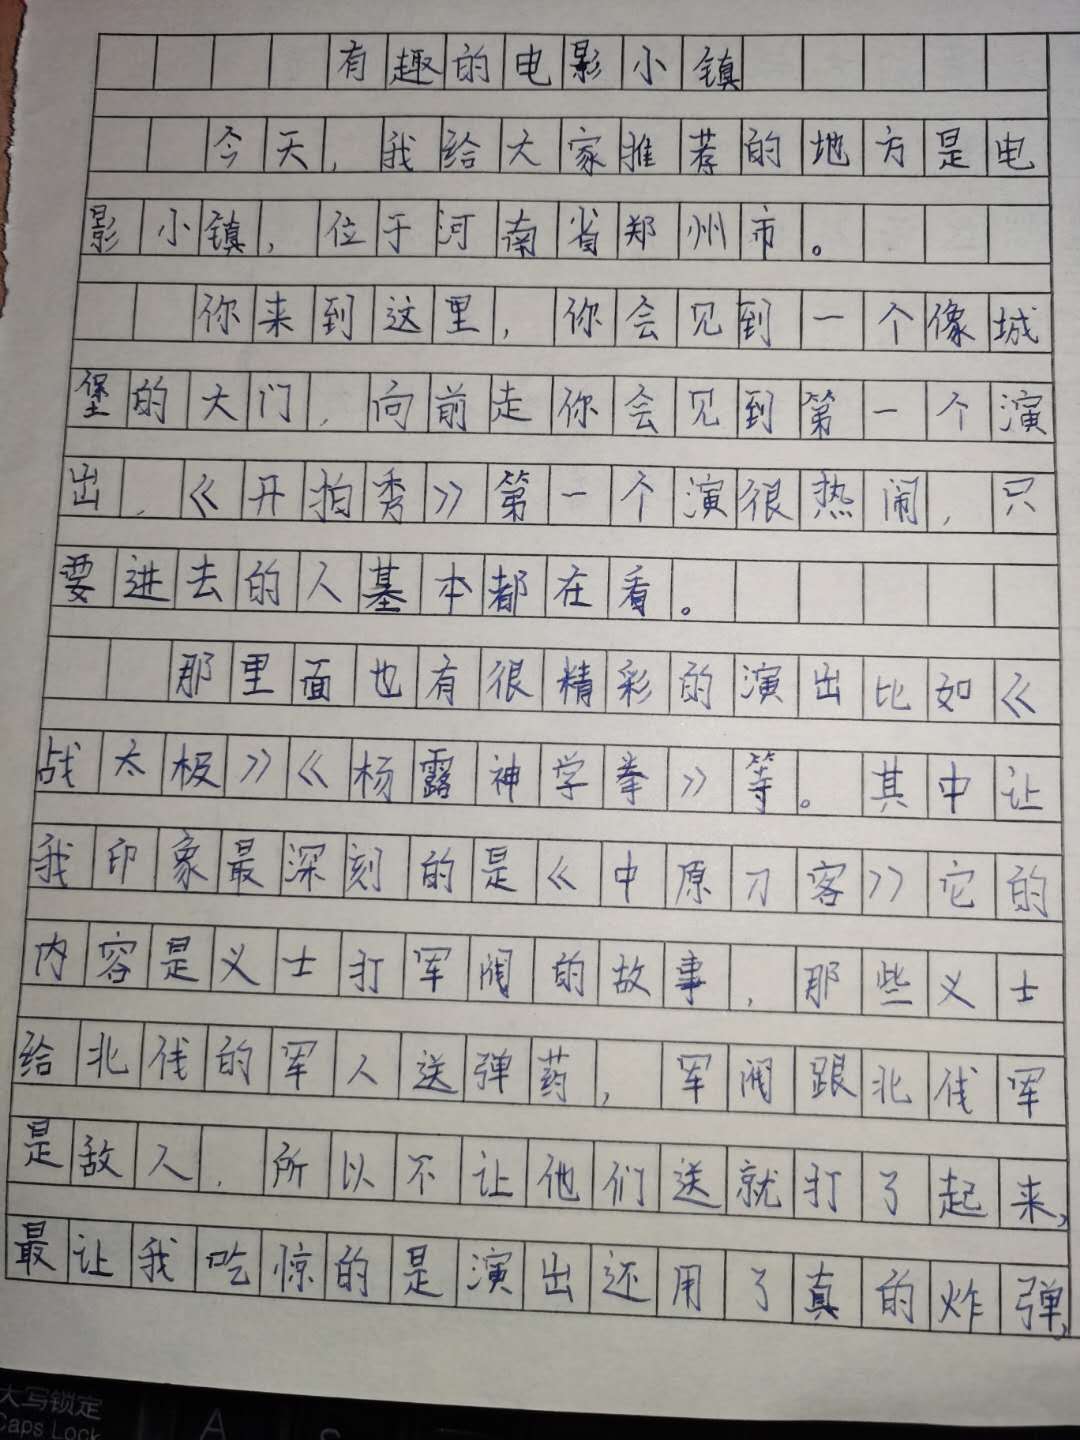 有趣的电影小镇
今天,我给大家推荐的地方是电
影小镇,位于河南省郑州市。
你来到这里,你会见到一个像城
堡的大门,向前走你会见到第一个演
出,《开拍秀》第一个演很热闹,只
要进去的人基本都在看。
那里面也有很精彩的演出比如《
战太极》《杨露神学拳》等。其中让
我印象最深刻的是《中原刀客》它的
内容是义士打军阀的故事,那些义士
给北伐的军人送弹药,军阀跟北伐军
是敌人,所以不让他们送就打了起来,
最让我吃惊的是演出还用了真的炸弹,
大写锁定
Caps Lock
A
S